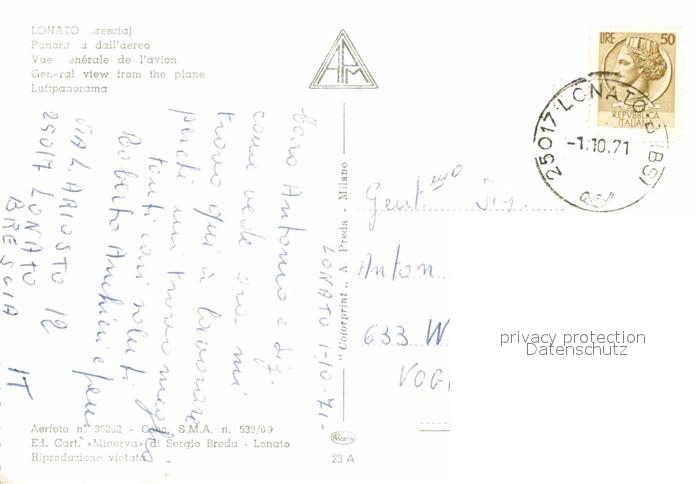 LONATO (Brescia)
Panorama dall'aereo
Vue générale de l'avion
General view from the plane
Luftpanorama
APM
LIRE 50
REPVBBLICA
ITALIANA
25017 LONATO (BS)
-1.10.71
LONATO 1-10-71-
Caro Antonio e Sig.
come vede ora mi
trovo qui a lavorare
perchè mi trovo meglio
tanti cari saluti
Roberto e fam.
VIA L. ARIOSTO 12
25017 LONATO
BRESCIA
IT
"Colorprint" A. Preda - Milano
Gent.mo Sig.
Anton
633 W
VOG
privacy protection
Datenschutz
Aerfoto n. 35282 - Conc. S.M.A. n. 539/69
Ed. Cart. «Minerva» di Sergio Breda - Lonato
Riproduzione vietata
23 A